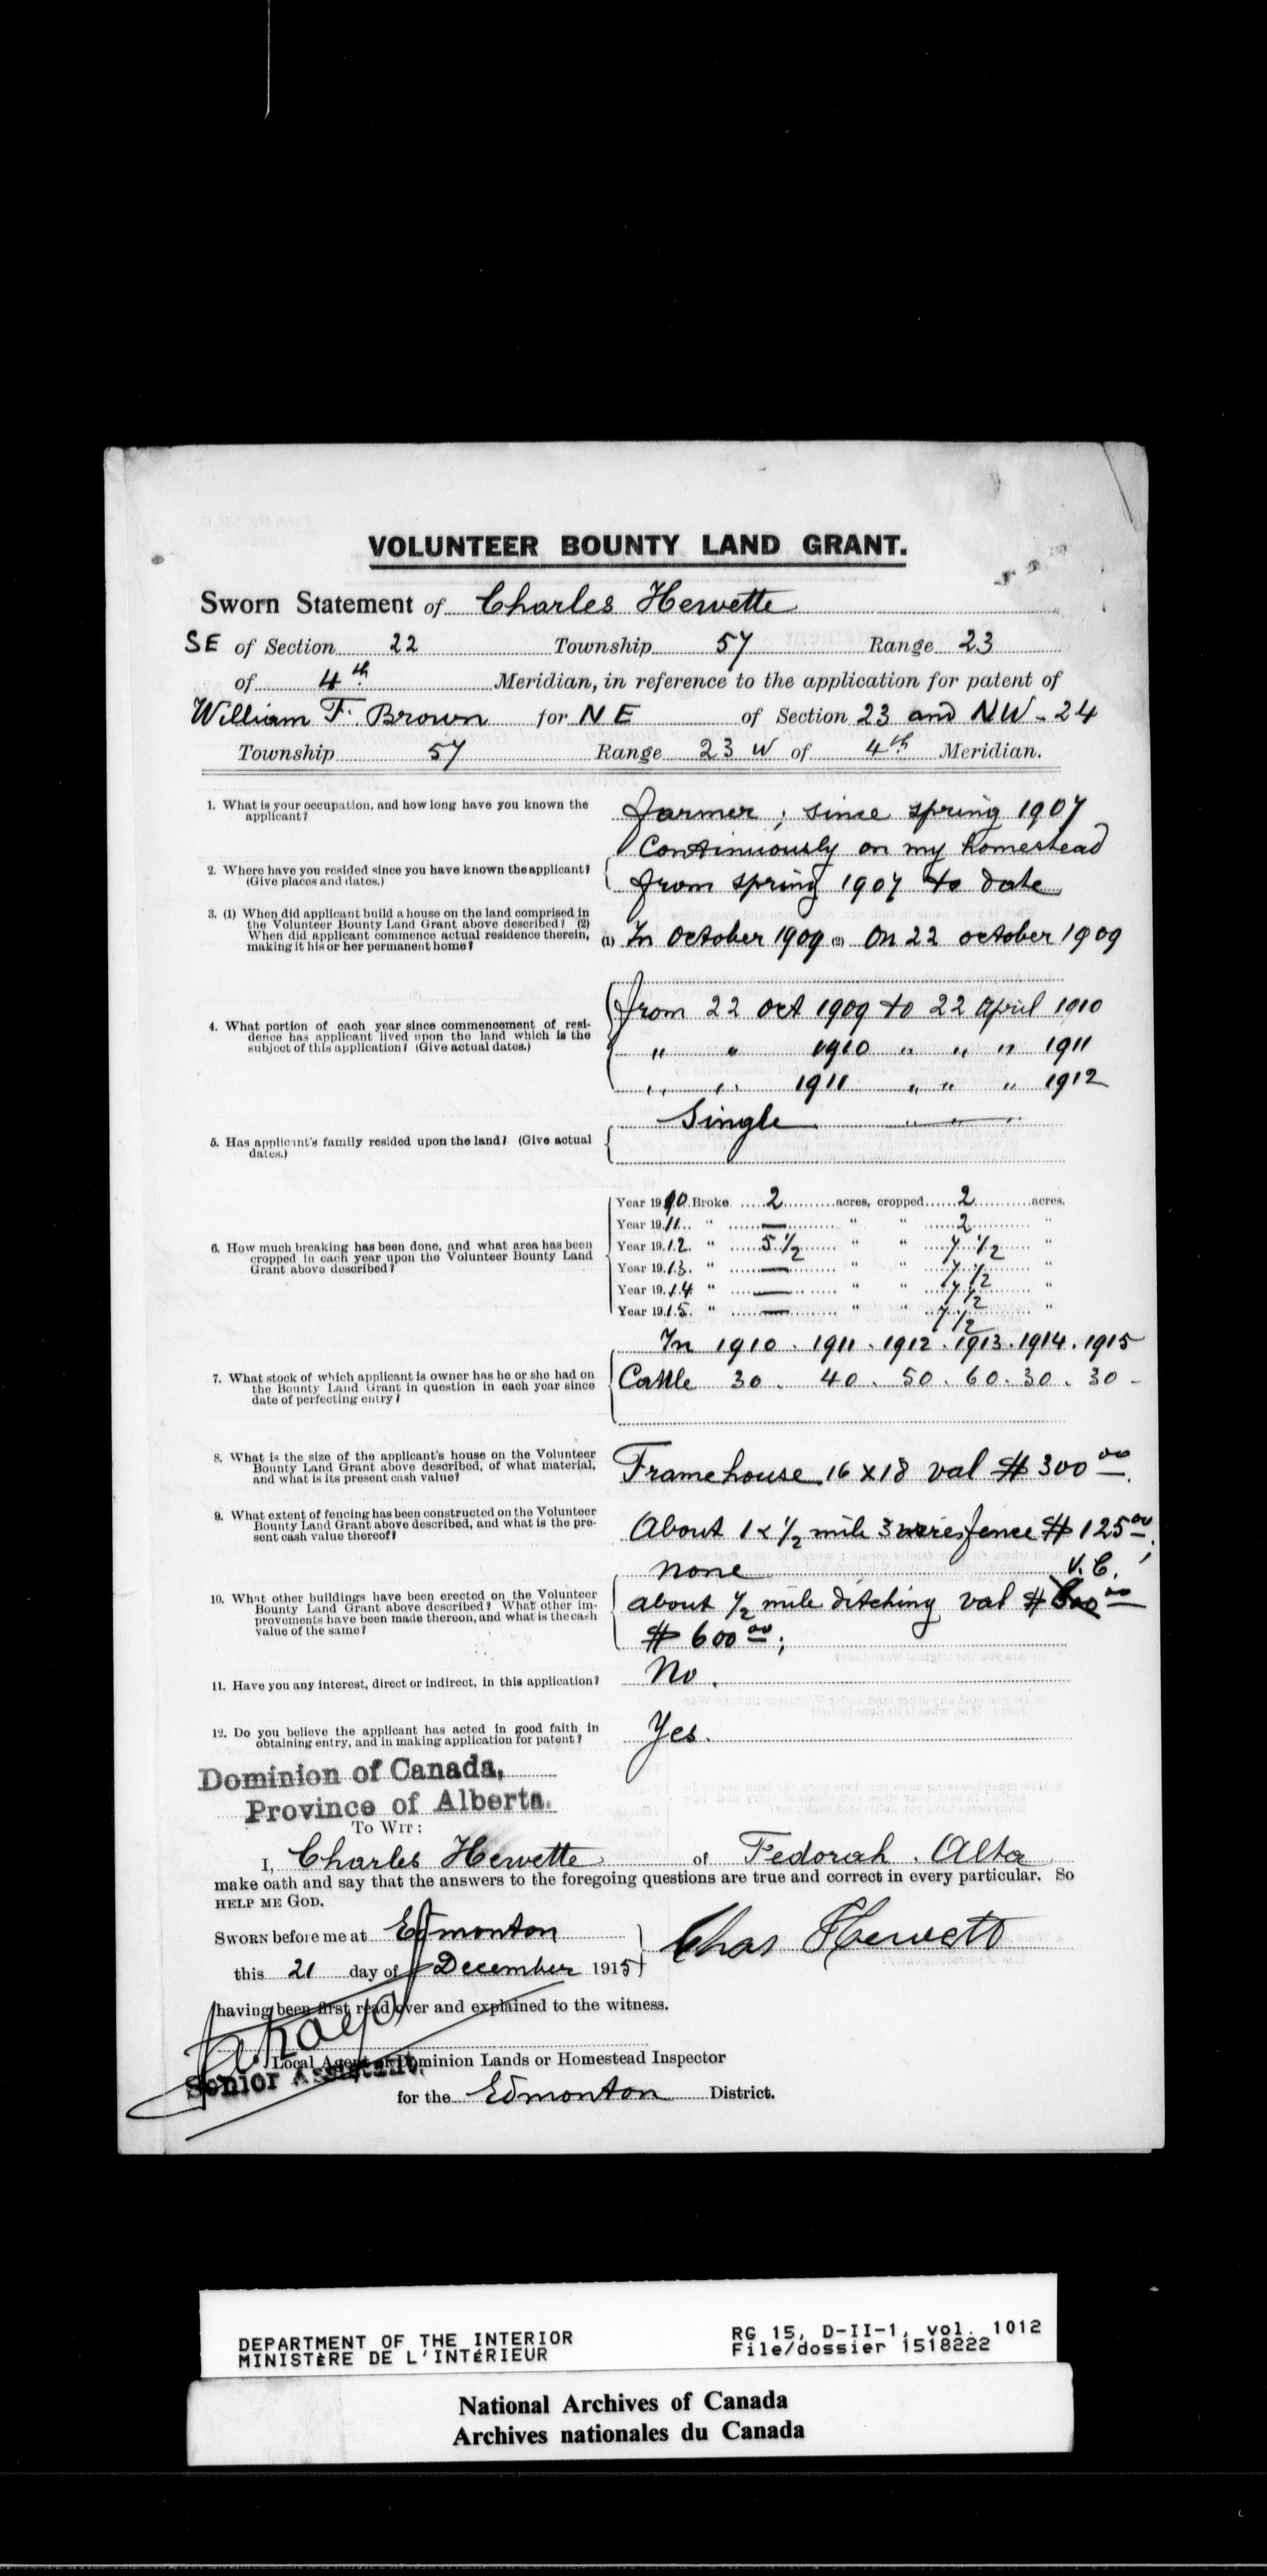 VOLUNTEER BOUNTY LAND GRANT.
Sworn Statement of Charles Hewette
SE of Section 22 Township 57 Range 23
of 4th Meridian, in reference to the application for patent of
William F. Brown for NE of Section 23 and NW - 24
Township 57 Range 23 W of 4th Meridian.
1. What is your occupation, and how long have you known the
applicant?
farmer ; since spring 1907
2. Where have you resided since you have known the applicant?
(Give places and dates.)
Continuously on my homestead
from spring 1907 to date
3. (1) When did applicant build a house on the land comprised in
the Volunteer Bounty Land Grant above described? (2)
When did applicant commence actual residence therein,
making it his or her permanent home?
(1) In October 1909 (2) On 22 october 1909
4. What portion of each year since commencement of resi-
dence has applicant lived upon the land which is the
subject of this application? (Give actual dates.)
from 22 oct 1909 to 22 april 1910
" " 1910 " " " 1911
" " 1911 " " " 1912
5. Has applicant's family resided upon the land? (Give actual
dates.)
Single
6. How much breaking has been done, and what area has been
cropped in each year upon the Volunteer Bounty Land
Grant above described?
Year 1910. Broke 2 acres, cropped 2 acres.
Year 1911 " — " " 2 "
Year 1912 " 5 1/2 " " 7 1/2 "
Year 1913 " — " " 7 1/2 "
Year 1914 " — " " 7 1/2 "
Year 1915 " — " " 7 1/2 "
7. What stock of which applicant is owner has he or she had on
the Bounty Land Grant in question in each year since
date of perfecting entry?
In 1910 . 1911 . 1912 . 1913 . 1914 . 1915
Cattle 30 . 40 . 50 . 60 . 30 . 30 -
8. What is the size of the applicant's house on the Volunteer
Bounty Land Grant above described, of what material,
and what is its present cash value?
Frame house 16 x 18 val $ 300 00
9. What extent of fencing has been constructed on the Volunteer
Bounty Land Grant above described, and what is the pre-
sent cash value thereof?
About 1 & 1/2 mile 3 wires fence $ 125 00;
10. What other buildings have been erected on the Volunteer
Bounty Land Grant above described? What other im-
provements have been made thereon, and what is the cash
value of the same?
none V. C.
about 1/2 mile ditching val $ 600 00
$ 600 00;
11. Have you any interest, direct or indirect, in this application?
No.
12. Do you believe the applicant has acted in good faith in
obtaining entry, and in making application for patent?
Yes.
Dominion of Canada,
Province of Alberta.
TO WIT:
I, Charles Hewette of Fedorah . Alta
make oath and say that the answers to the foregoing questions are true and correct in every particular. So
HELP ME GOD.
SWORN before me at Edmonton
Chas Hewett
this 21 day of December 1915
having been first read over and explained to the witness.
Local Agent of Dominion Lands or Homestead Inspector
Senior Assistant.
for the Edmonton District.
DEPARTMENT OF THE INTERIOR
MINISTÈRE DE L'INTÉRIEUR
RG 15, D-II-1, vol. 1012
File/dossier 1518222
National Archives of Canada
Archives nationales du Canada